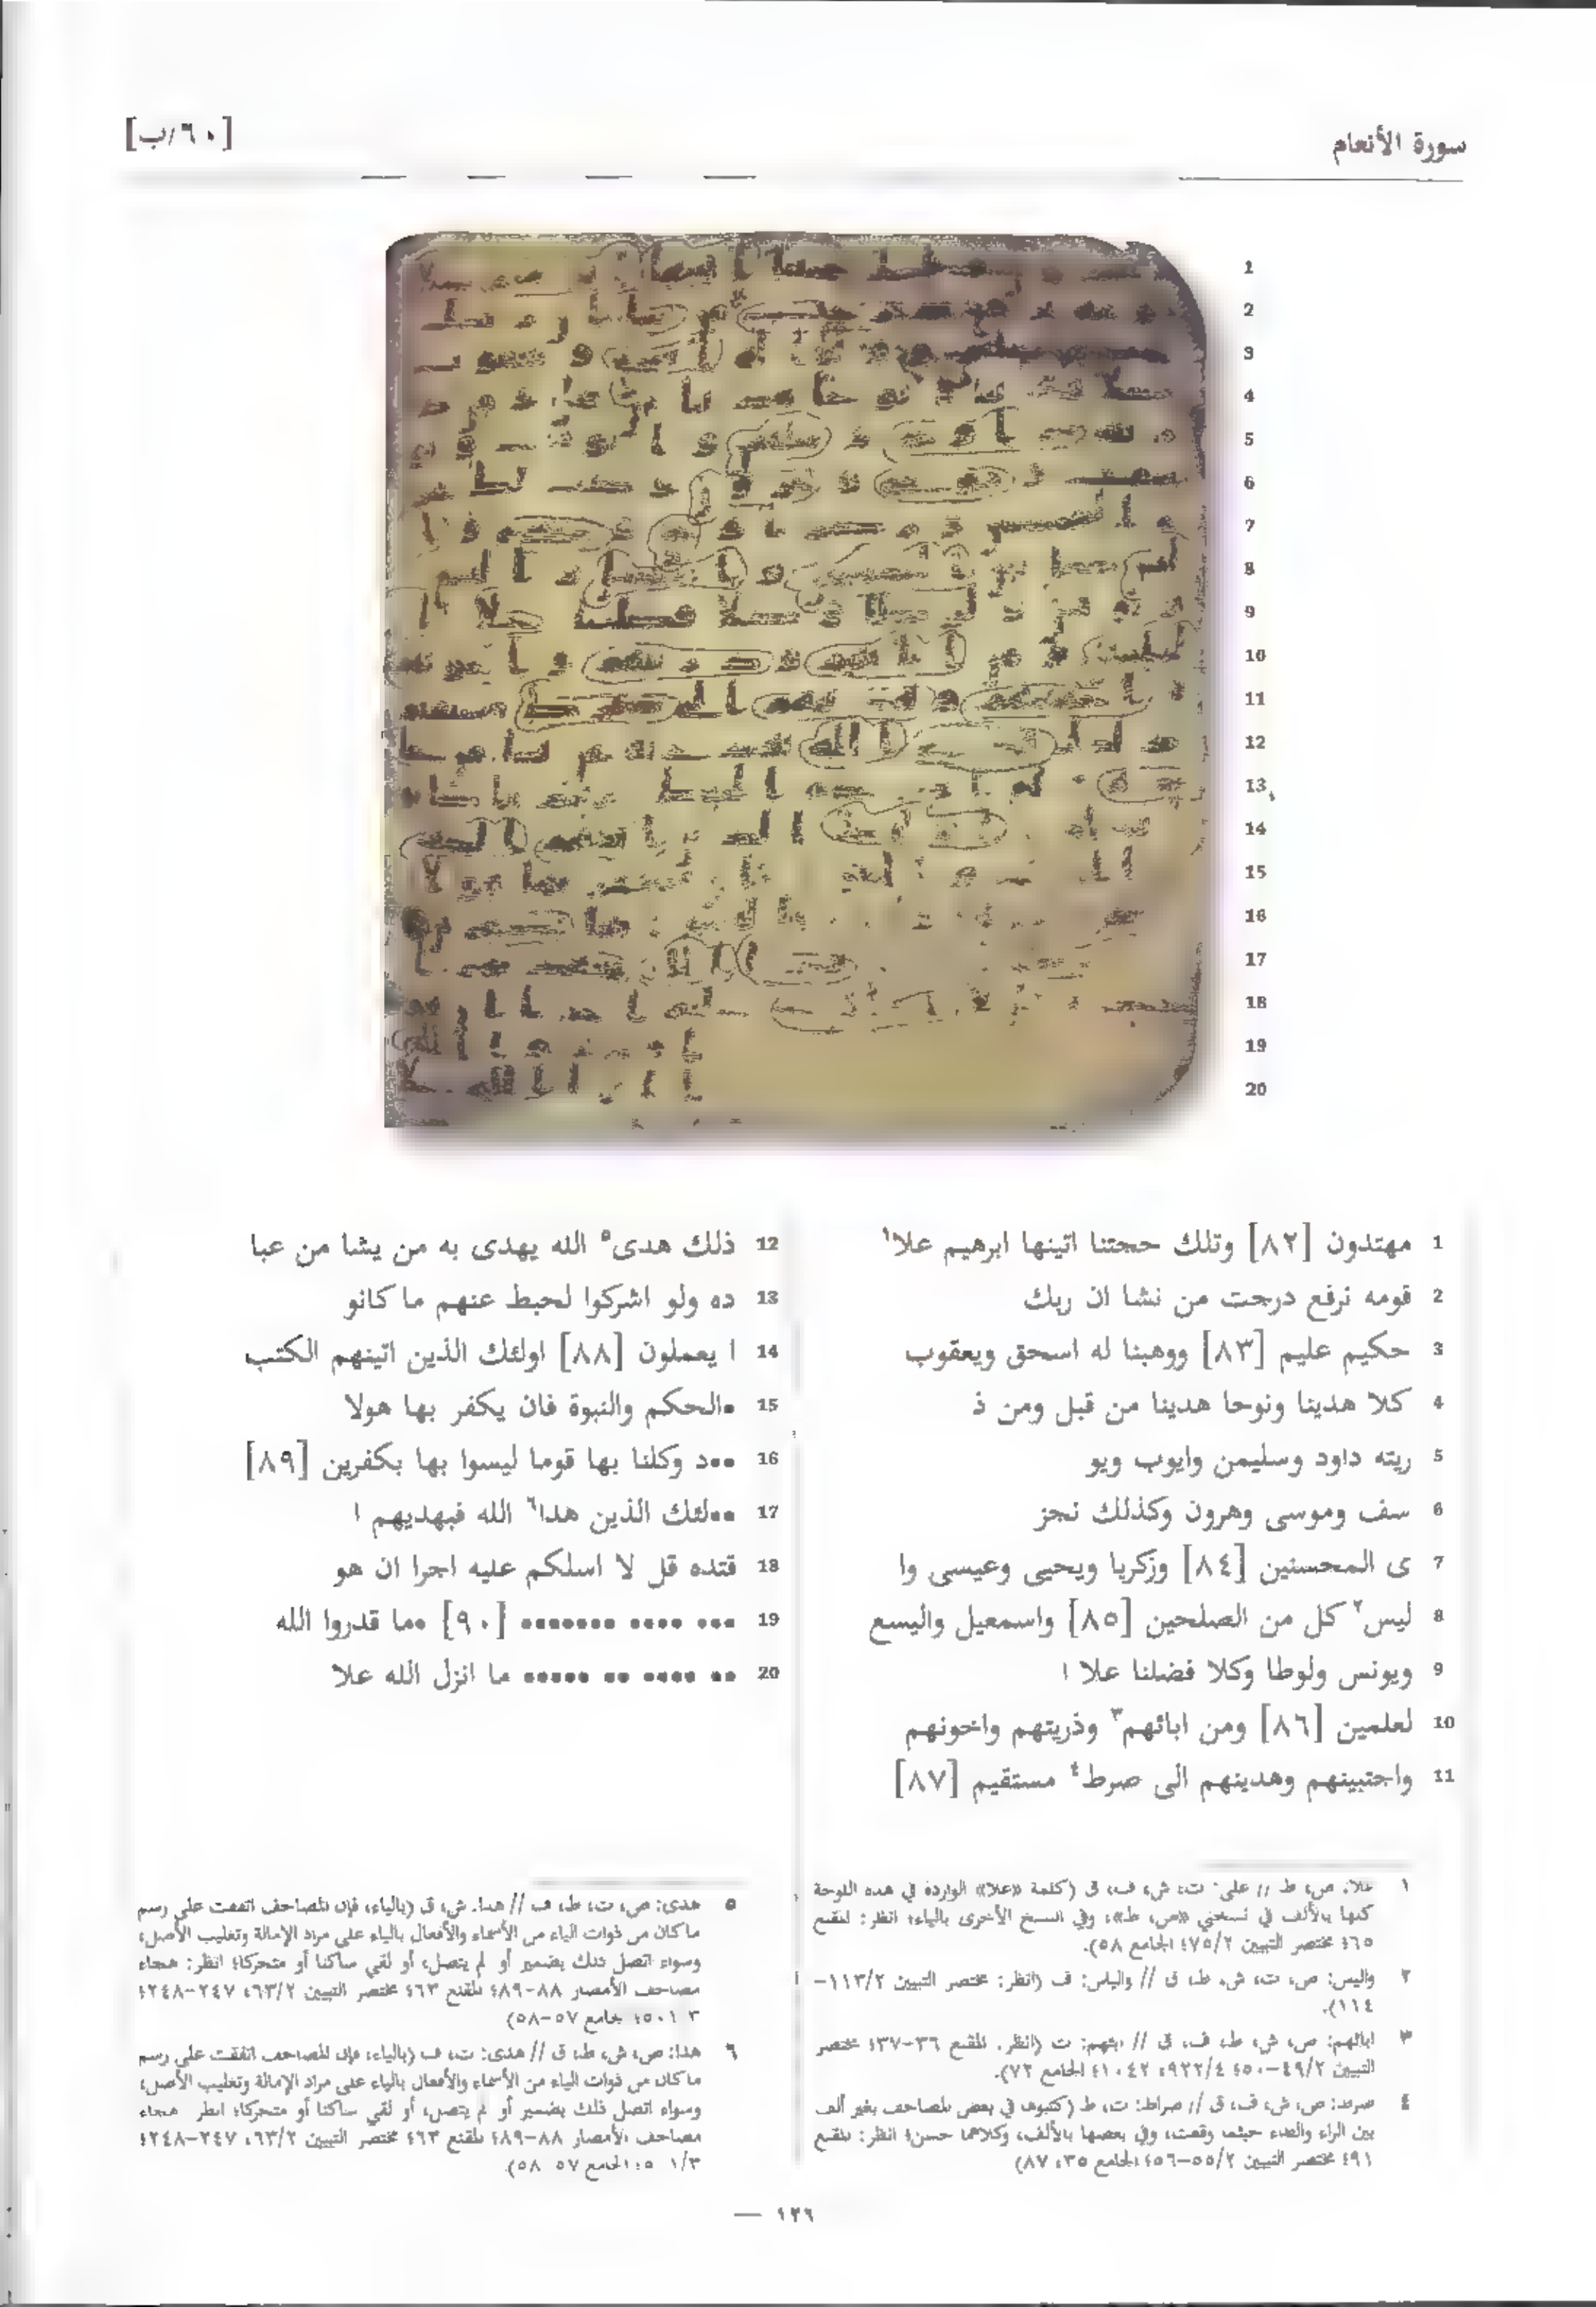 سورة الأنعام
[٦٠/ب]
1 مهتدون [٨٢] وتلك حجتنا اتينها ابرهيم علا١
2 قومه نرفع درجت من نشا ان ربك
3 حكيم عليم [٨٣] ووهبنا له اسحق ويعقوب
4 كلا هدينا ونوحا هدينا من قبل ومن ذ
5 ريته داود وسليمن وايوب ويو
6 سف وموسى وهرون وكذلك نجز
7 ى المحسنين [٨٤] وزكريا ويحيى وعيسى وا
8 ليس٢ كل من الصلحين [٨٥] واسمعيل واليسع
9 ويونس ولوطا وكلا فضلنا علا ا
10 لعلمين [٨٦] ومن ابائهم٣ وذريتهم واخونهم
11 واجتبينهم وهدينهم الى صرط٤ مستقيم [٨٧]
12 ذلك هدى٥ الله يهدى به من يشا من عبا
13 ده ولو اشركوا لحبط عنهم ما كانو
14 ا يعملون [٨٨] اولئك الذين اتينهم الكتب
15 •الحكم والنبوة فان يكفر بها هولا
16 ••د وكلنا بها قوما ليسوا بها بكفرين [٨٩]
17 ••لئك الذين هدا٦ الله فبهديهم ا
18 قتده قل لا اسلكم عليه اجرا ان هو
19 ••• •••• ••••••• [٩٠] •ما قدروا الله
20 •• •••• •• ••••• ما انزل الله علا
١ علا: ص، ط // على: ت، ش، ف، ق (كلمة «علا» الواردة في هذه اللوحة
كتبها بالألف في نسختي «ص، ط»، وفي النسخ الأخرى بالياء؛ انظر: المقنع
٤٦٥ مختصر التبيين ٧٥/٢؛ الجامع ٥٨).
٢ واليس: ص، ت، ش، ط، ق // والياس: ف (انظر: مختصر التبيين ١١٣/٢–
١١٤).
٣ ابائهم: ص، ش، ط، ف، ق // ابيهم: ت (انظر: المقنع ٣٦–٣٧؛ مختصر
التبيين ٤٩/٢–٥٠؛ ٩٢٢/٤، ١٠٤٢؛ الجامع ٧٢).
٤ صرط: ص، ش، ف، ق // صراط: ت، ط (كتبوها في بعض المصاحف بغير ألف
بين الراء والطاء حيثما وقعت، وفي بعضها بالألف، وكلاهما حسن؛ انظر: المقنع
٤٩١ مختصر التبيين ٥٥/٢–٥٦؛ الجامع ٣٥، ٨٧)
٥ هدى: ص، ت، ط، ف // هدا: ش، ق (بالياء، فإن المصاحف اتفقت على رسم
ما كان من ذوات الياء من الأسماء والأفعال بالياء على مراد الإمالة وتغليب الأصل،
وسواء اتصل ذلك بضمير أو لم يتصل، أو لقي ساكنا أو متحركا؛ انظر: هجاء
مصاحف الأمصار ٨٨–٨٩؛ المقنع ٤٦٣ مختصر التبيين ٦٣/٢، ٢٤٧–٢٤٨؛
الجامع ٥٧–٥٨)
٦ هدا: ص، ش، ط، ق // هدى: ت، ف (بالياء، فإن المصاحف اتفقت على رسم
ما كان من ذوات الياء من الأسماء والأفعال بالياء على مراد الإمالة وتغليب الأصل،
وسواء اتصل ذلك بضمير أو لم يتصل، أو لقي ساكنا أو متحركا؛ انظر هجاء
مصاحف الأمصار ٨٨–٨٩؛ المقنع ٤٦٣ مختصر التبيين ٦٣/٢، ٢٤٧–٢٤٨؛
الجامع ٥٧ ٥٨).
— ١٢٦